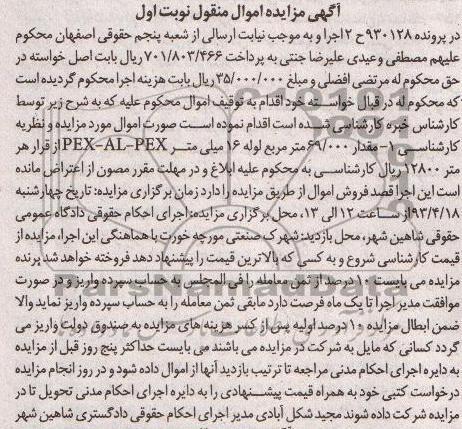 آگهی مزایده اموال منقول نوبت اول
در پرونده ۹۳۰۱۲۸ ح ۲ اجرا و به موجب نیابت ارسالی از شعبه پنجم حقوقی اصفهان محکوم
علیهم مصطفی وعیدی علیرضا جنتی به پرداخت ۷۰۱/۸۰۳/۴۶۶ ریال بابت اصل خواسته در
حق محکوم له مرتضی افضلی و مبلغ ۳۵/۰۰۰/۰۰۰ ریال بابت هزینه اجرا محکوم گردیده است
که محکوم له در قبال خواسته خود اقدام به توقیف اموال محکوم علیه که به شرح زیر توسط
کارشناس خبره کارشناسی شده است اقدام نموده است صورت اموال مورد مزایده و نظریه
کارشناسی ۱- مقدار ۶۹/۰۰۰ متر مربع لوله ۱۶ میلی متر PEX-AL-PEX از قرار هر
متر ۱۲۸۰۰ ریال کارشناسی به محکوم علیه ابلاغ و در مهلت مقرر مصون از اعتراض مانده
است این اجرا قصد فروش اموال از طریق مزایده را دارد زمان برگزاری مزایده: تاریخ چهارشنبه
۹۳/۴/۱۸ از ساعت ۱۲ الی ۱۳، محل برگزاری مزایده: اجرای احکام حقوقی دادگاه عمومی
حقوقی شاهین شهر، محل بازدید: شهرک صنعتی مورچه خورت با هماهنگی این اجرا، مزایده از
قیمت کارشناسی شروع و به کسی که بالاترین قیمت را پیشنهاد دهد فروخته خواهد شد برنده
مزایده می بایست ۱۰ درصد از ثمن معامله را فی المجلس به حساب سپرده واریز و در صورت
موافقت مدیر اجرا تا یک ماه فرصت دارد مابقی ثمن معامله را به حساب سپرده واریز نماید والا
ضمن ابطال مزایده ۱۰ درصد اولیه پس از کسر هزینه های مزایده به صندوق دولت واریز می
گردد کسانی که مایل به شرکت در مزایده می باشند می بایست حداکثر پنج روز قبل از مزایده
به دایره اجرای احکام مدنی مراجعه تا ترتیب بازدید آنها از اموال داده شود و در روز انجام مزایده
درخواست کتبی خود به همراه قیمت پیشنهادی را به دایره اجرای احکام مدنی تحویل تا در
مزایده شرکت داده شوند مجید شکل آبادی مدیر اجرای احکام حقوقی دادگستری شاهین شهر